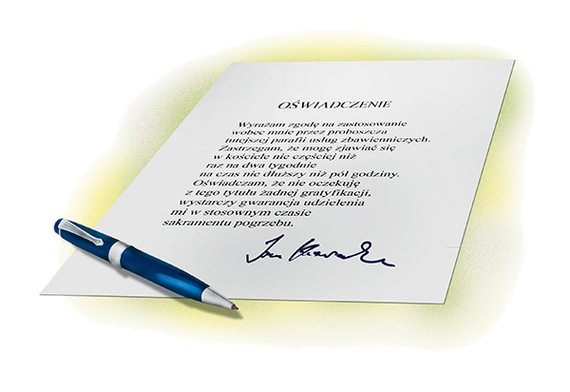 OŚWIADCZENIE
Wyrażam zgodę na zastosowanie
wobec mnie przez proboszcza
tutejszej parafii usług zbawienniczych.
Zastrzegam, że mogę zjawiać się
w kościele nie częściej niż
raz na dwa tygodnie
na czas nie dłuższy niż pół godziny.
Oświadczam, że nie oczekuję
z tego tytułu żadnej gratyfikacji,
wystarczy gwarancja udzielenia
mi w stosownym czasie
sakramentu pogrzebu.